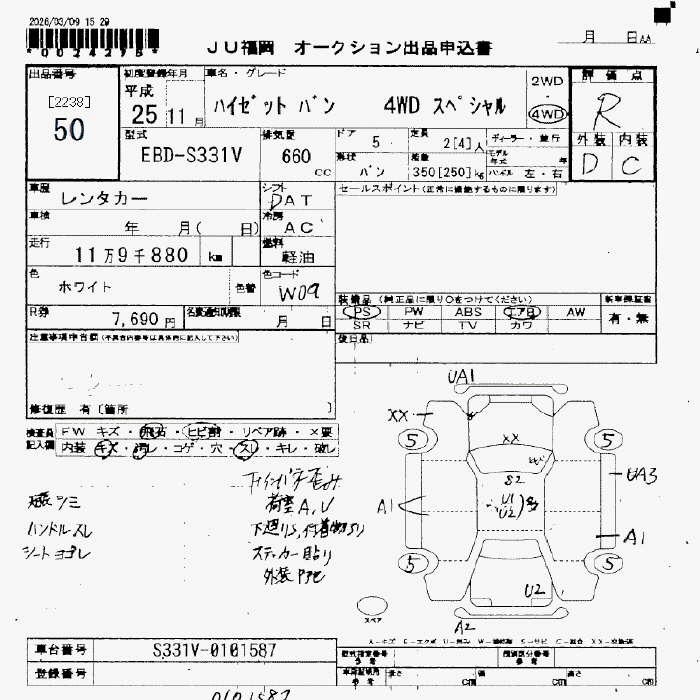 2026/03/09 15 29
*0024278*
JU福岡 オークション出品申込書
月 日
出品番号
[2238]
50
初度登録年月
平成
25 11 月
車名・グレード
ハイゼット バン 4WD スペシャル
2WD
4WD
評価点
R
外装 内装
D C
型式
EBD-S331V
排気量
660
cc
ドア
5
定員
2[4]人
形状
バン
積量
350[250]kg
ディーラー・並行
モデル年式 年
ハンドル 左・右
車歴
レンタカー
シフト
DAT
セールスポイント(正常に機能するものに限ります)
車検
年 月( 日)
冷房
AC
走行
11万9千880 km
燃料
軽油
色
ホワイト
色替
色コード
W09
装備品(純正品に限り○をつけてください)
PS PW ABS エアB AW
SR ナビ TV カワ
新車保証書
有・無
R券
7,690 円
名変通知期限
月 日
後日品
注意事項申告欄
修復歴 有〔箇所 〕
検査員記入欄
FW キズ・飛石・ヒビ割・リペア跡・×要
内装 キズ・汚レ・コゲ・穴・スレ・キレ・破レ
ハンドルスレ
シートヨゴレ
荷室A,U
ステッカー貼り
UA1
XX
5
5
XX
S2
U1
U2
A1
UA3
A1
5
5
U2
A2
スペア
車台番号
S331V-0101587
登録番号
型式指定番号
参考
類別区分番号
参考
長さ cm
幅 cm
高さ cm
0101587